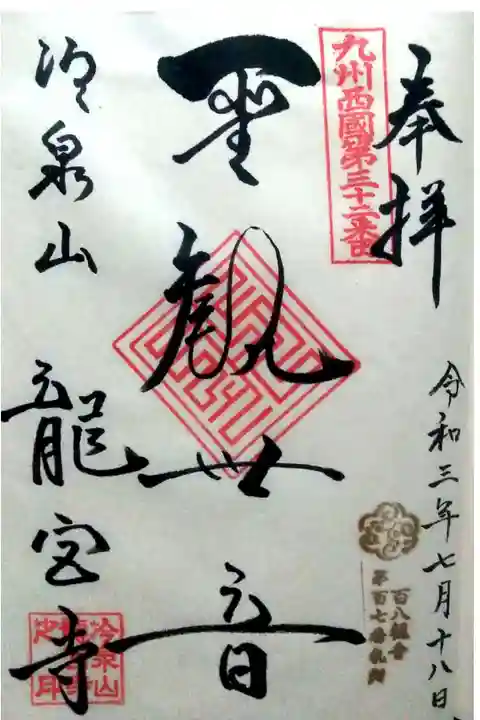 奉拝
九州西國第三十二番
令和三年七月十八日
聖観世音
冷泉山
龍宮寺
百八観音
第百七番札所